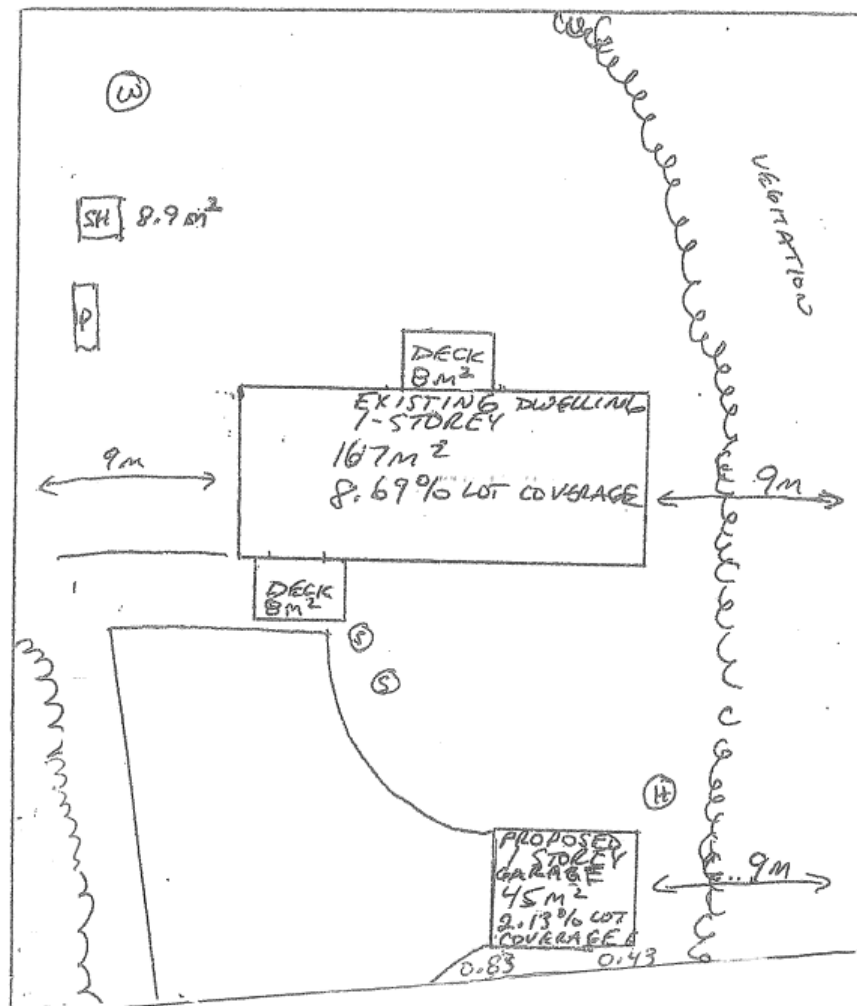 W
SH 8.9 m²
VEGITATION
P
DECK
8m²
EXISTING DWELLING
1-STOREY
167m²
8.69% LOT COVERAGE
9m
9m
DECK
8m²
S
S
H
PROPOSED
1 STOREY
GARAGE
45m²
2.13% LOT
COVERAGE
9m
0.83
0.43